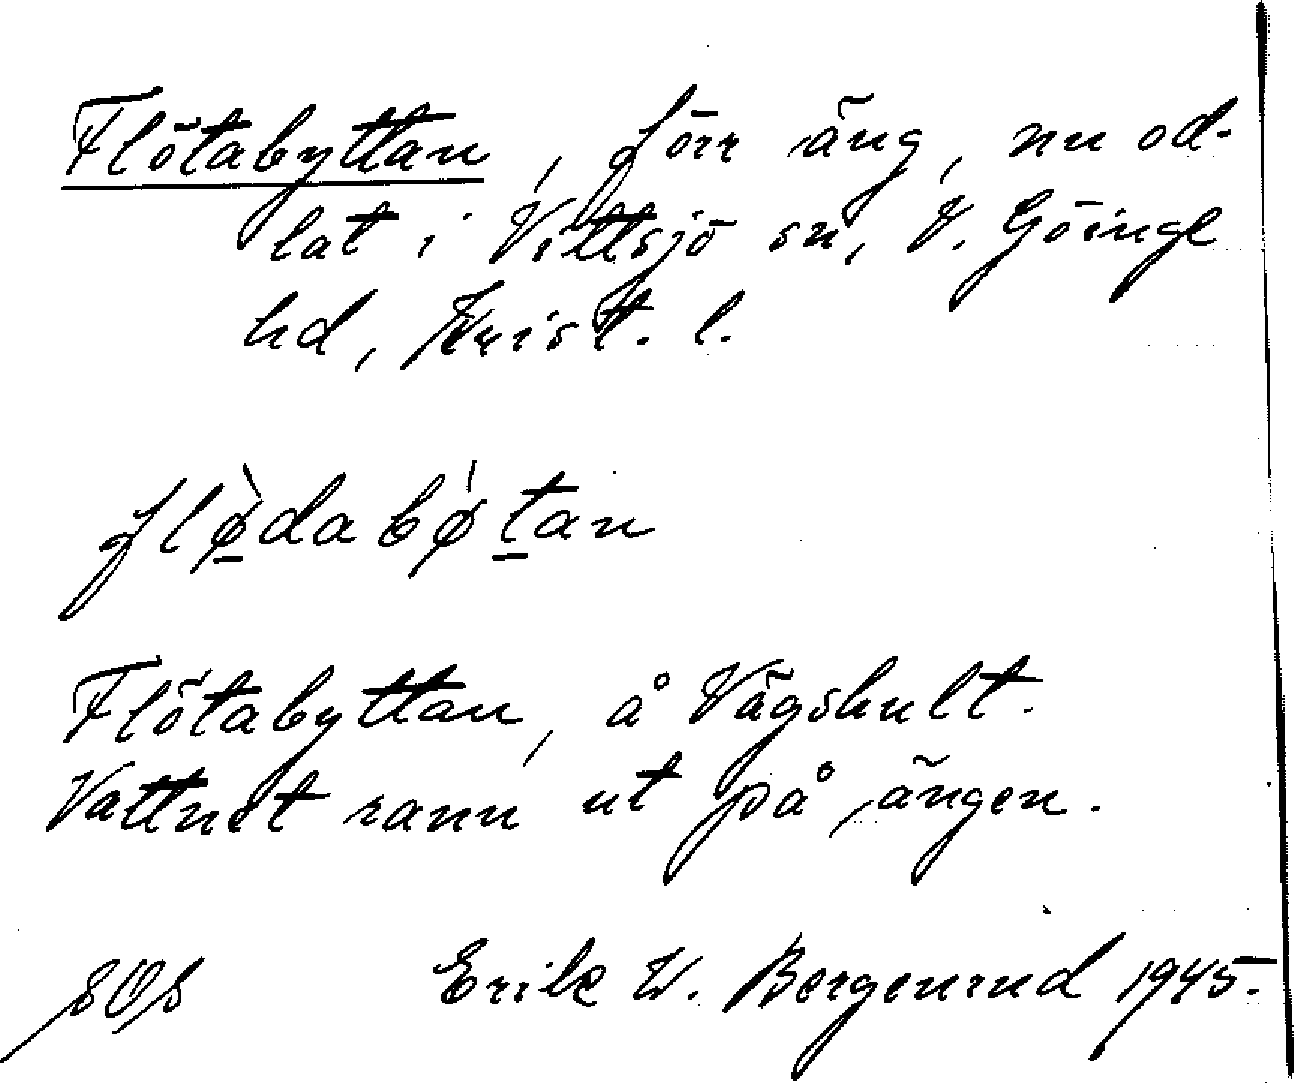 Flötabyttan, förr äng, nu od-
lat i Vittsjö sn, V. Göinge
hd, Krist. l.
flø̠̀dabǿt̠an
Flötabyttan, å Vägshult.
Vattnet rann ut på ängen.
Erik W. Bergenrud 1945.